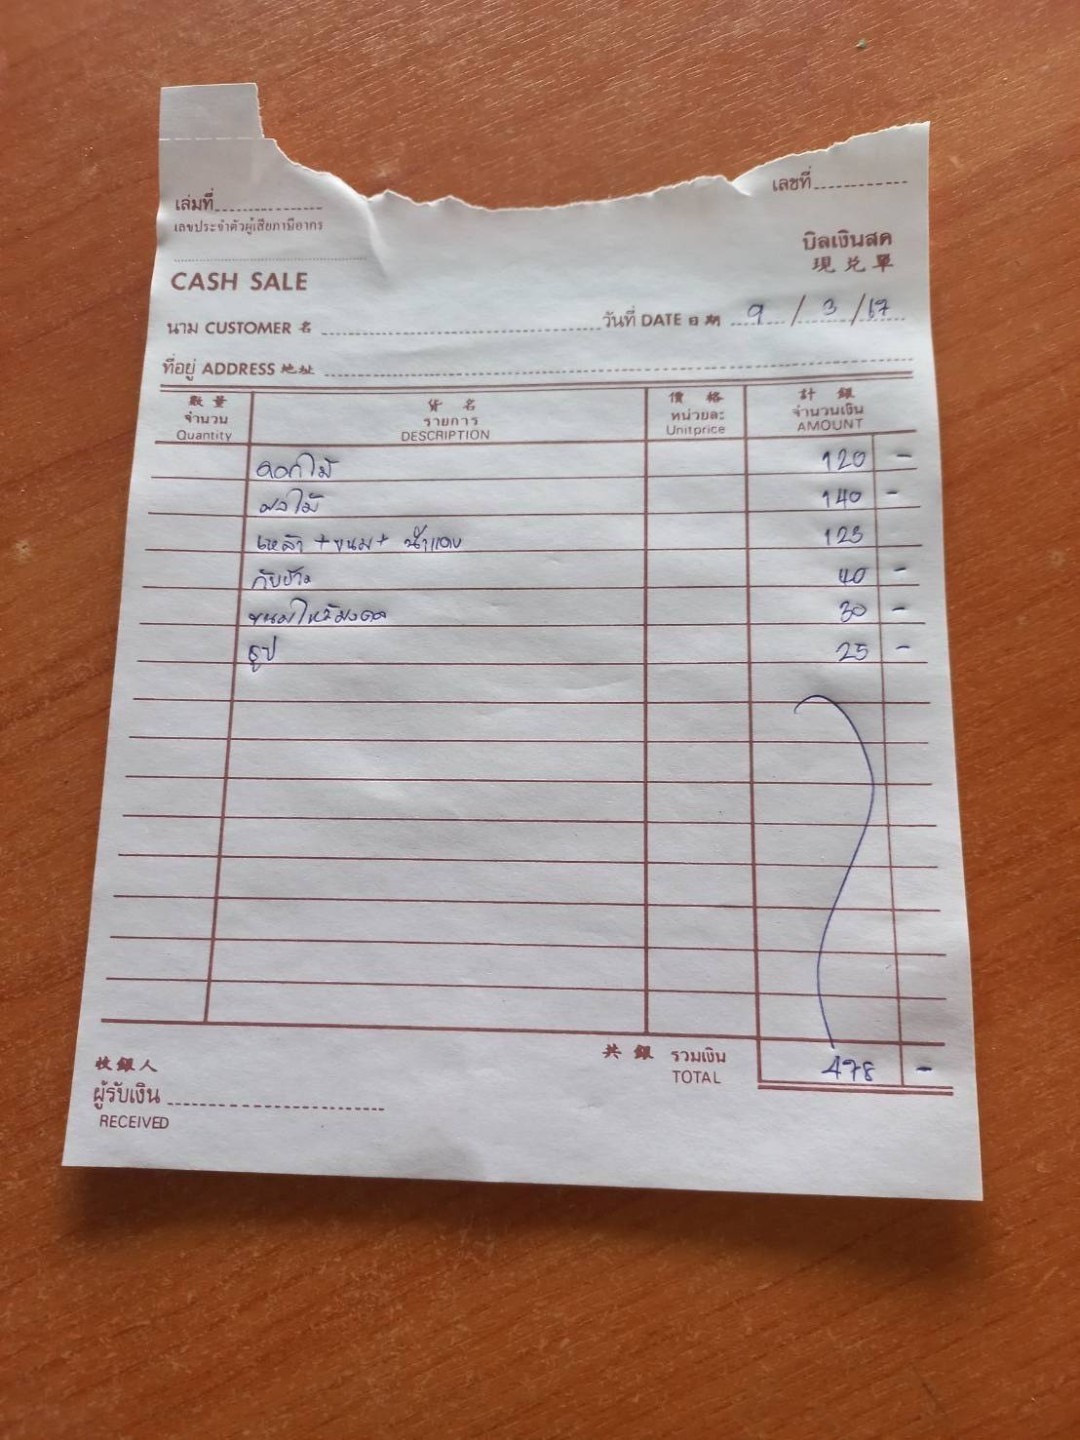 เล่มที่ เลขที่
เลขประจำตัวผู้เสียภาษีอากร
บิลเงินสด
現兌單
CASH SALE
นาม CUSTOMER 名 วันที่ DATE 日期 9/3/67
ที่อยู่ ADDRESS 地址
數量 貨名 價格 計銀
จำนวน รายการ หน่วยละ จำนวนเงิน
Quantity DESCRIPTION Unitprice AMOUNT
ดอกไม้ 120 -
ผลไม้ 140 -
เหล้า + ขนม + น้ำแดง 123
กับข้าว 40 -
ขนมไหว้มงคล 30 -
ธูป 25 -
收銀人 共銀 รวมเงิน 478 -
ผู้รับเงิน TOTAL
RECEIVED